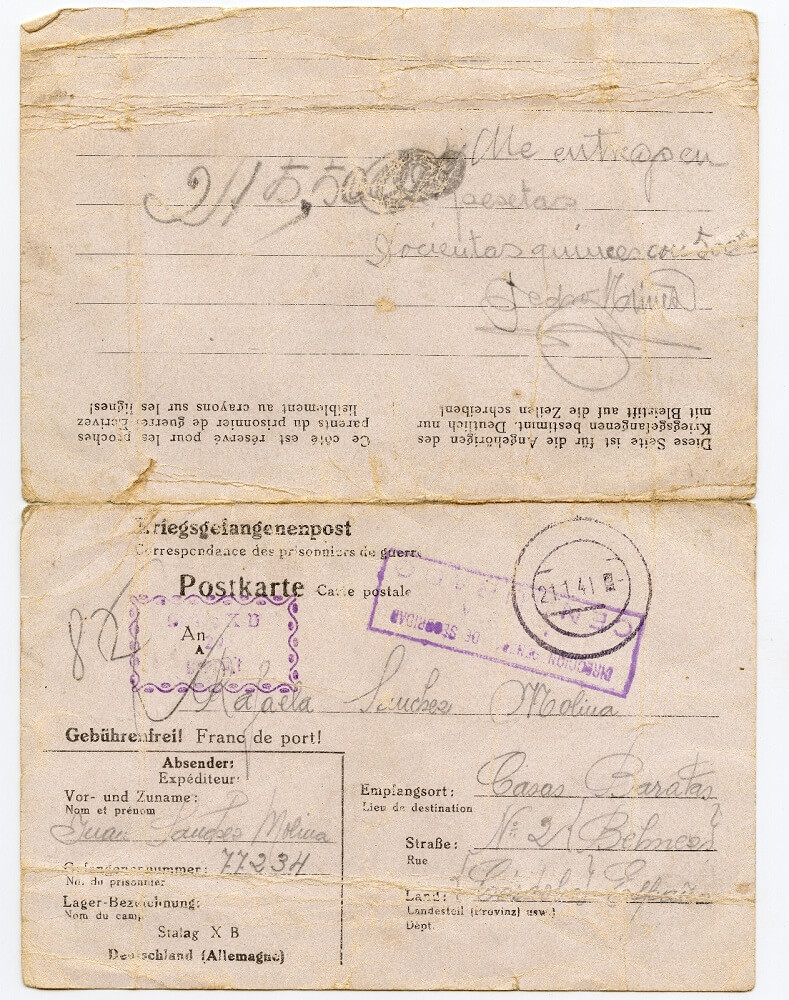 Me entregen
215,50 pesetas
Pedro
Diese Seite ist für die Angehörigen des
Kriegsgefangenen bestimmt. Deutlich nur
mit Bleistift auf die Zeilen schreiben!
Ce côté est réservé pour les proches
parents du prisonnier de guerre. Écrivez
lisiblement au crayons sur les lignes!
Kriegsgefangenenpost
Correspondance des prisonniers de guerre
Postkarte Carte postale
21.1.41
DIRECCION DE SEGURIDAD
82
An
A
X B
Rafaela Sanchez Molina
Gebührenfrei! Franc de port!
Absender:
Expéditeur:
Vor- und Zuname:
Nom et prénom
Juan Sanchez Molina
Gefangenennummer: 77234
No. du prisonnier
Lager-Bezeichnung:
Nom du camp
Stalag X B
Deutschland (Allemagne)
Empfangsort: Casas Baratas
Lieu de destination
Straße: Nº 2 (Belmez)
Rue
Land: (Córdoba) España
Landesteil (Provinz) usw.)
Dépt.